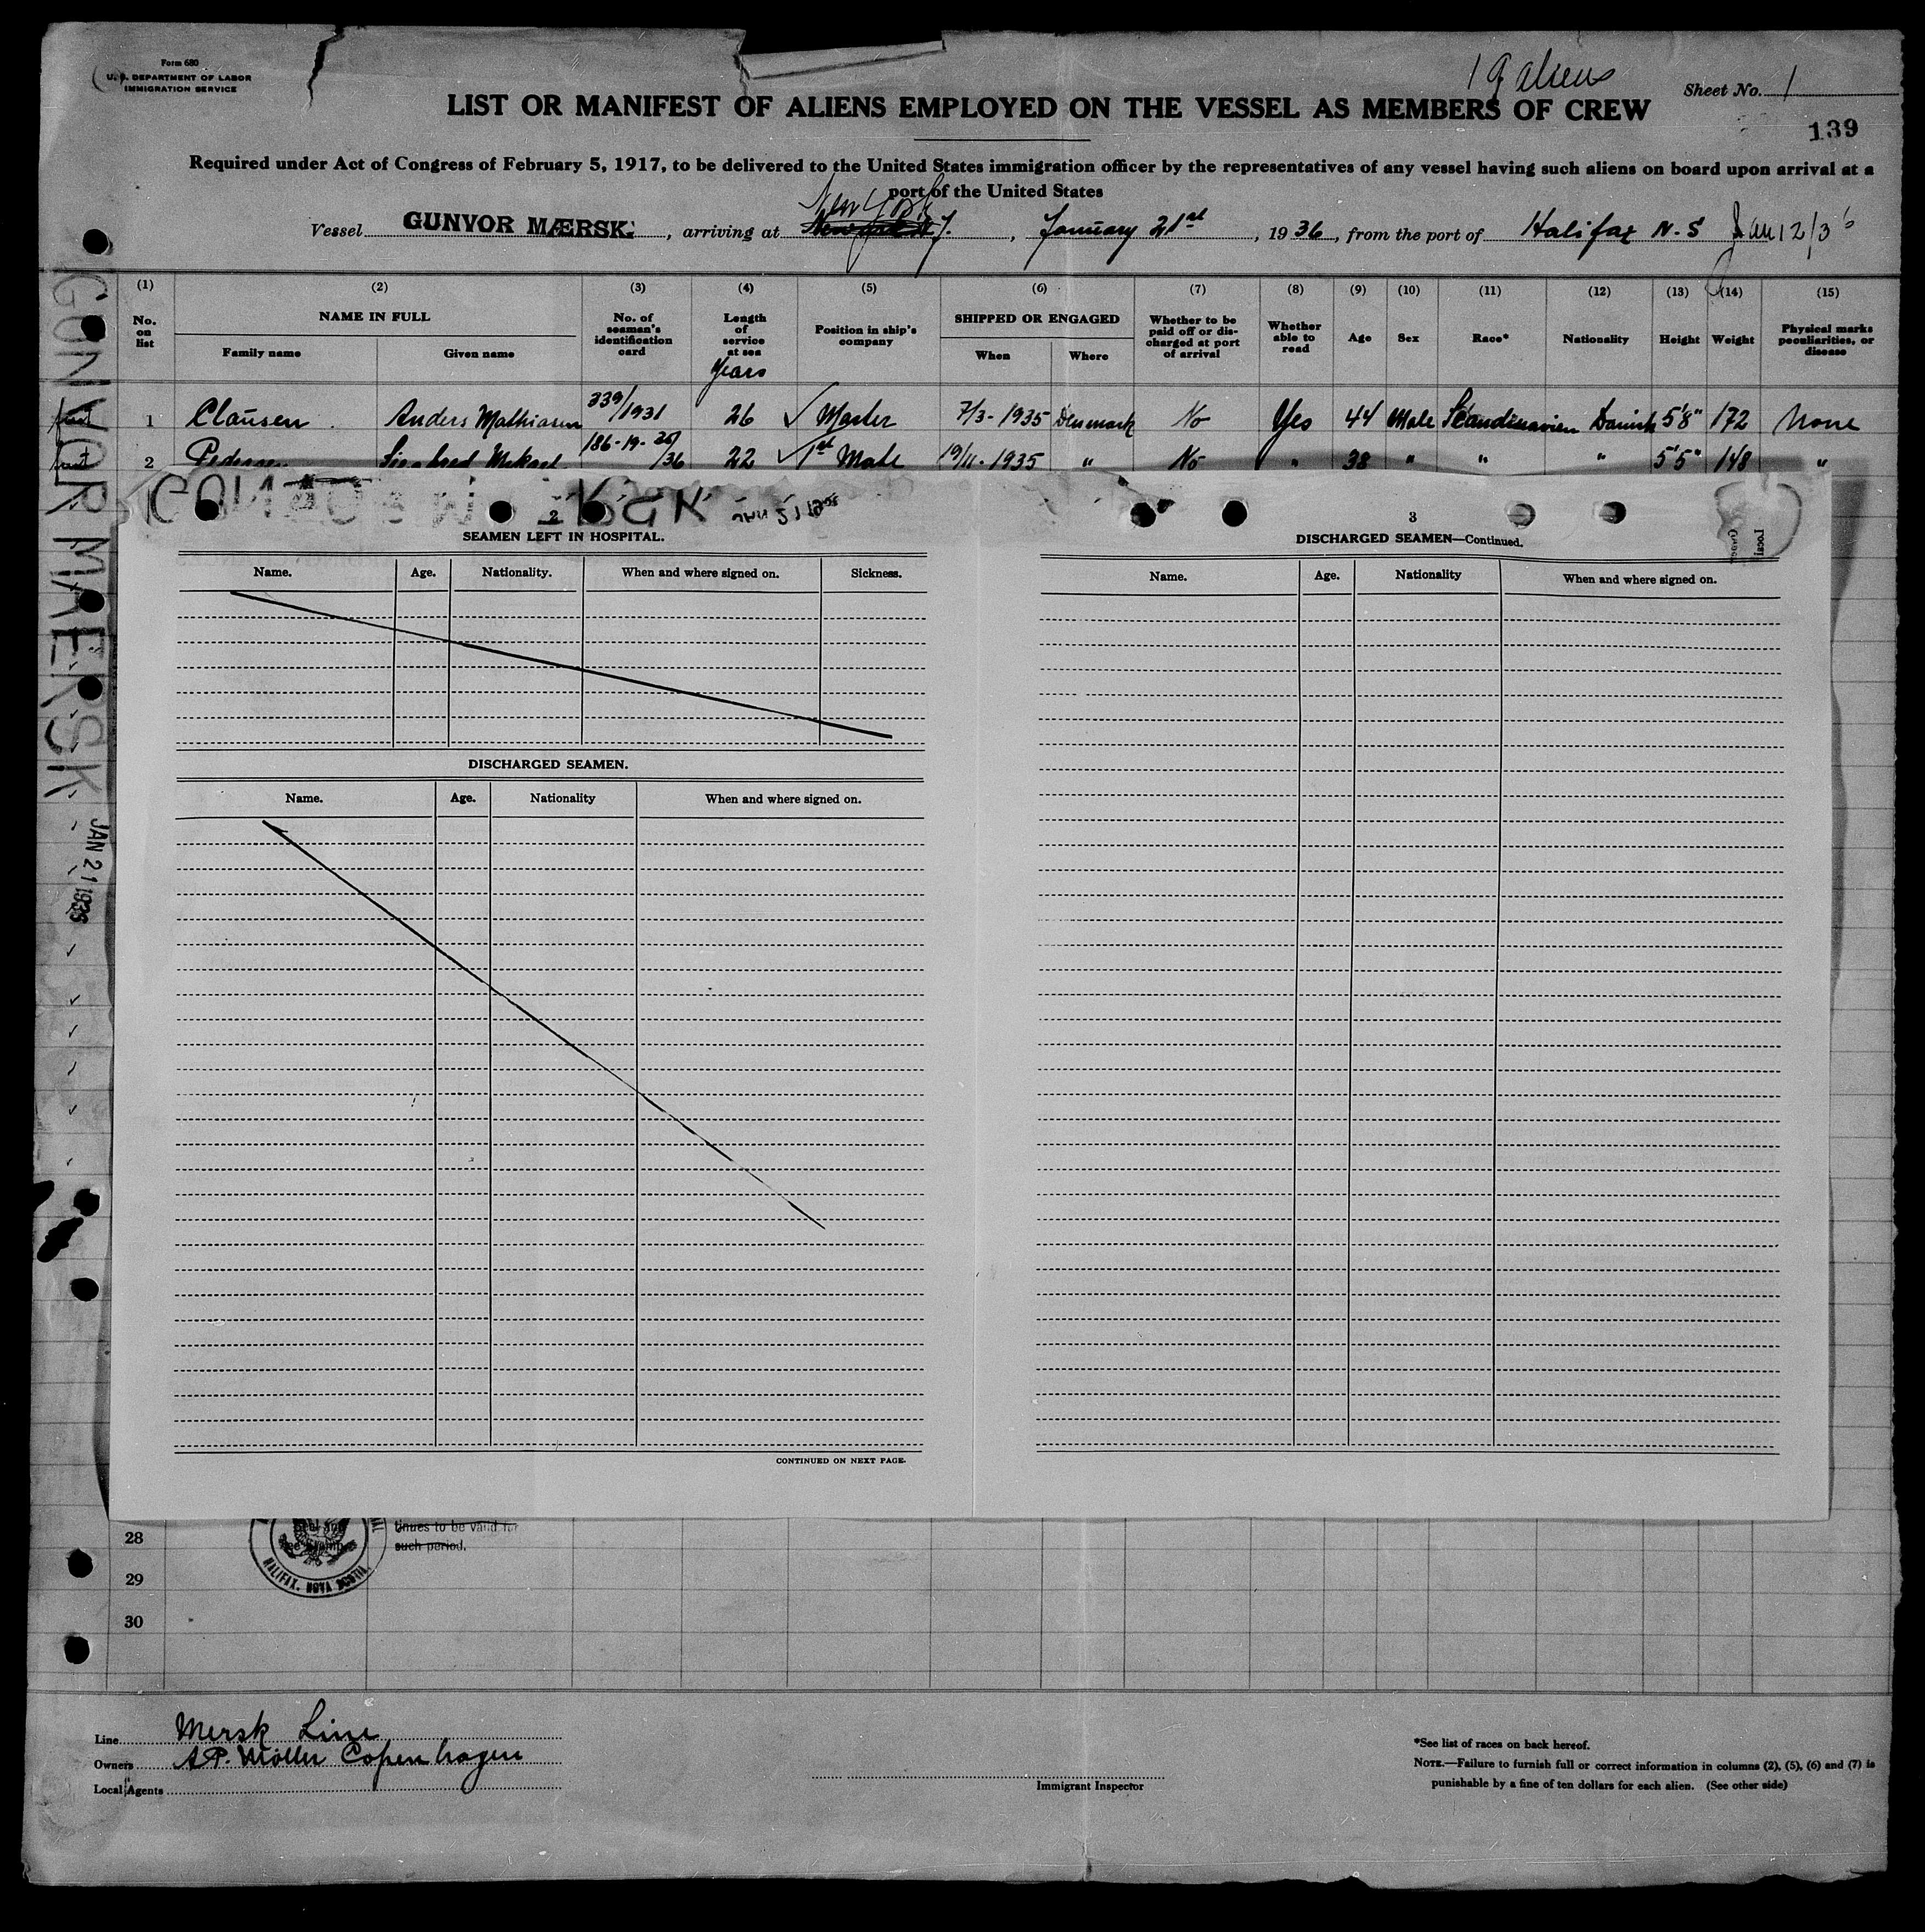 Form 680
U. S. DEPARTMENT OF LABOR
IMMIGRATION SERVICE
19 aliens
Sheet No. 1
LIST OR MANIFEST OF ALIENS EMPLOYED ON THE VESSEL AS MEMBERS OF CREW
139
Required under Act of Congress of February 5, 1917, to be delivered to the United States immigration officer by the representatives of any vessel having such aliens on board upon arrival at a
port of the United States
New York
Vessel GUNVOR MÆRSK, arriving at Newark N.J., January 21st, 1936, from the port of Halifax N.S Jan 12/36
(1) (2) (3) (4) (5) (6) (7) (8) (9) (10) (11) (12) (13) (14) (15)
No. on list
NAME IN FULL
Family name Given name
No. of seaman's identification card
Length of service at sea
Years
Position in ship's company
SHIPPED OR ENGAGED
When Where
Whether to be paid off or discharged at port of arrival
Whether able to read
Age
Sex
Race*
Nationality
Height
Weight
Physical marks peculiarities, or disease
1 Clausen Anders Mathiasen 339/1931 26 ✓ Master 7/3-1935 Denmark No Yes 44 Male Scandinavien Danish 5'8" 172 None
2 Pedersen Mikael 22 ✓ 1st Mate 19/11-1935 " No " 38 " " " 5'5" 148 "
GUNVOR MAERSK
JAN 21 1936
2
SEAMEN LEFT IN HOSPITAL.
Name. Age. Nationality. When and where signed on. Sickness.
DISCHARGED SEAMEN.
Name. Age. Nationality When and where signed on.
CONTINUED ON NEXT PAGE.
3
DISCHARGED SEAMEN—Continued.
Name. Age. Nationality When and where signed on.
Local
28
tinues to be valid for
such period.
HALIFAX, NOVA SCOTIA
29
30
Line Mersk Line
Owners A.P. Möller Copenhagen
Local Agents
Immigrant Inspector
*See list of races on back hereof.
NOTE.—Failure to furnish full or correct information in columns (2), (5), (6) and (7) is
punishable by a fine of ten dollars for each alien. (See other side)